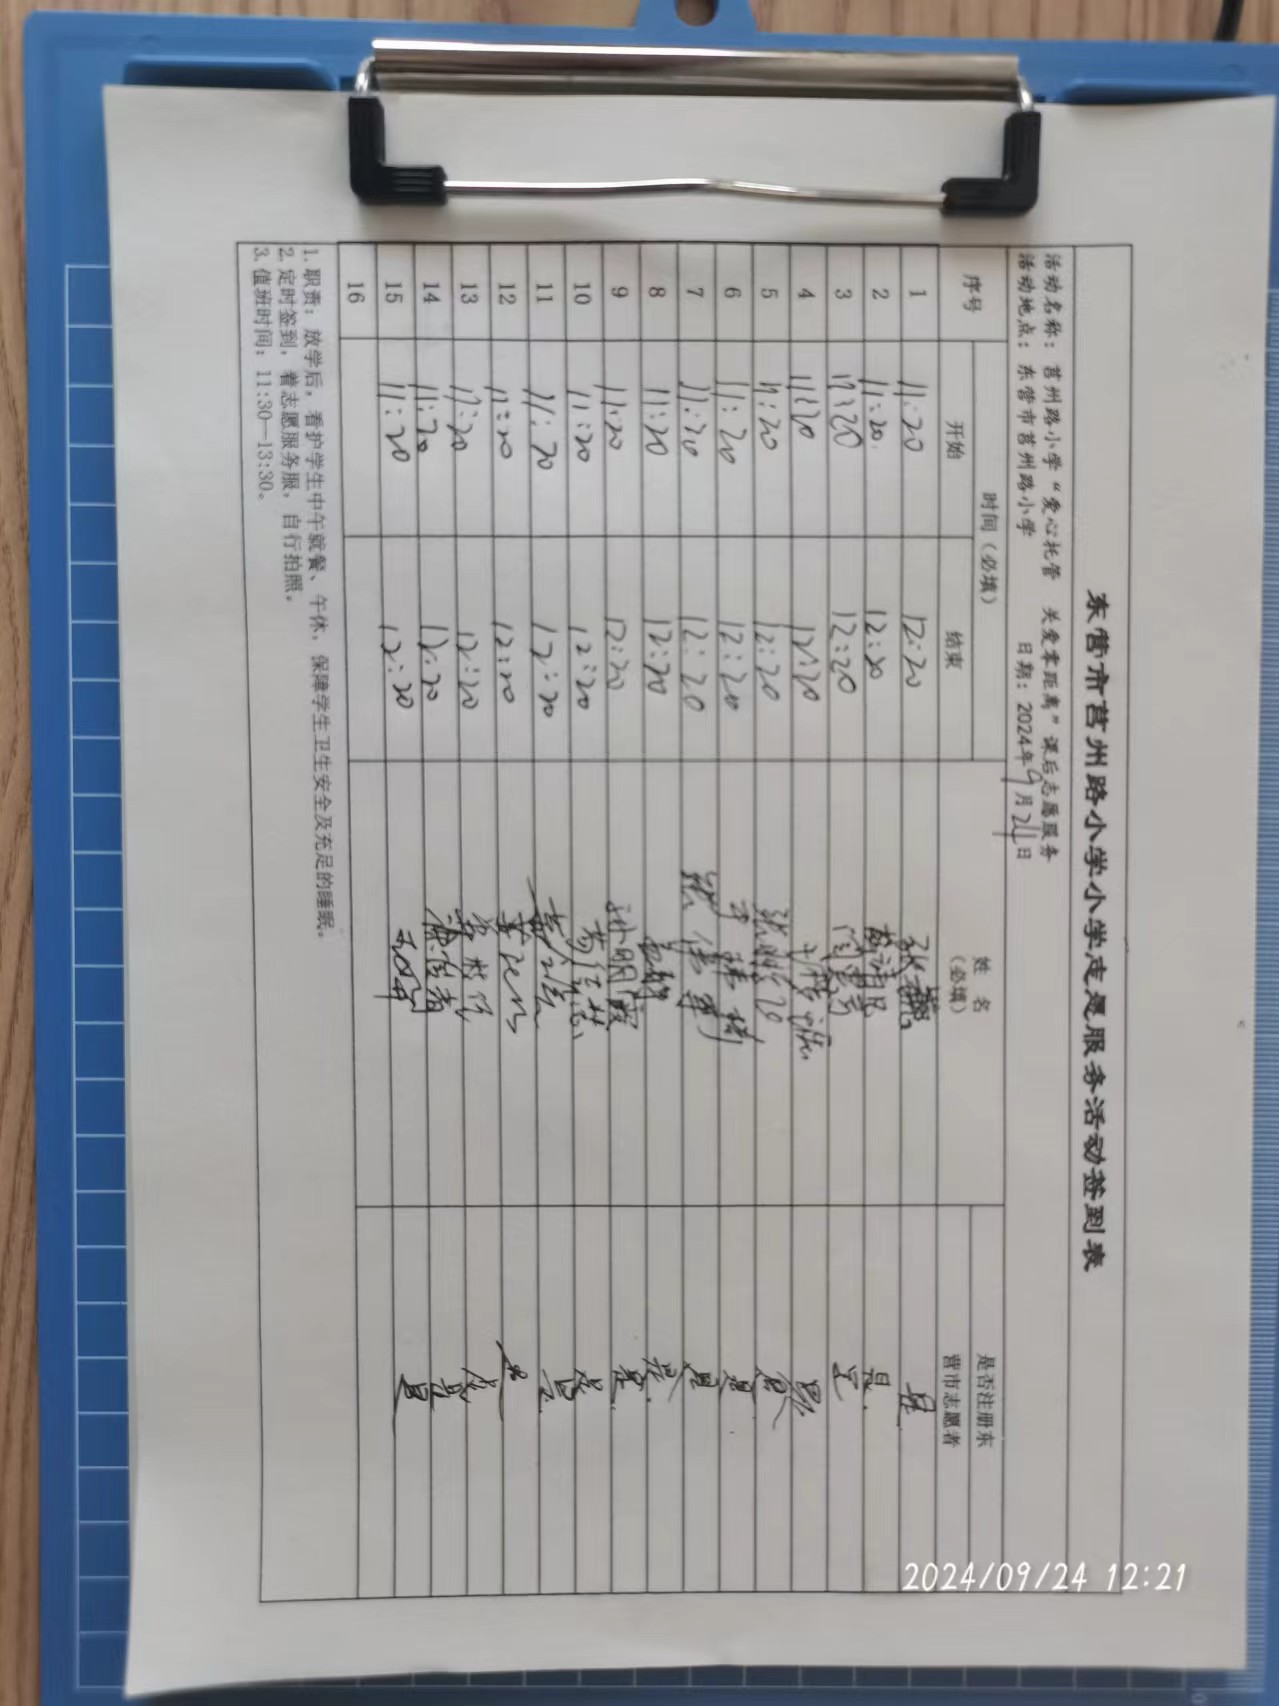 东营市莒州路小学小学志愿服务活动签到表
活动名称：莒州路小学“爱心托管 关爱零距离”课后志愿服务
活动地点：东营市莒州路小学 日期：2024年9月24日
序号 时间（必填） 姓 名（必填） 是否注册东营市志愿者
开始 结束
1 11:20 12:20 是
2 11:20 12:20 是
3 11:20 12:20 是
4 11:20 12:20 是
5 11:20 12:20 是
6 11:20 12:20 是
7 11:20 12:20 是
8 11:20 12:20 是
9 11:20 12:20 孙明霞 是
10 11:20 12:20 是
11 11:20 12:20 是
12 11:20 12:20 是
13 11:20 12:20 是
14 11:20 12:20 是
15 11:20 12:20 是
16
1. 职责：放学后，看护学生中午就餐、午休，保障学生卫生安全及充足的睡眠。
2. 定时签到，着志愿服务服，自行拍照。
3. 值班时间：11:30—13:30。
2024/09/24 12:21